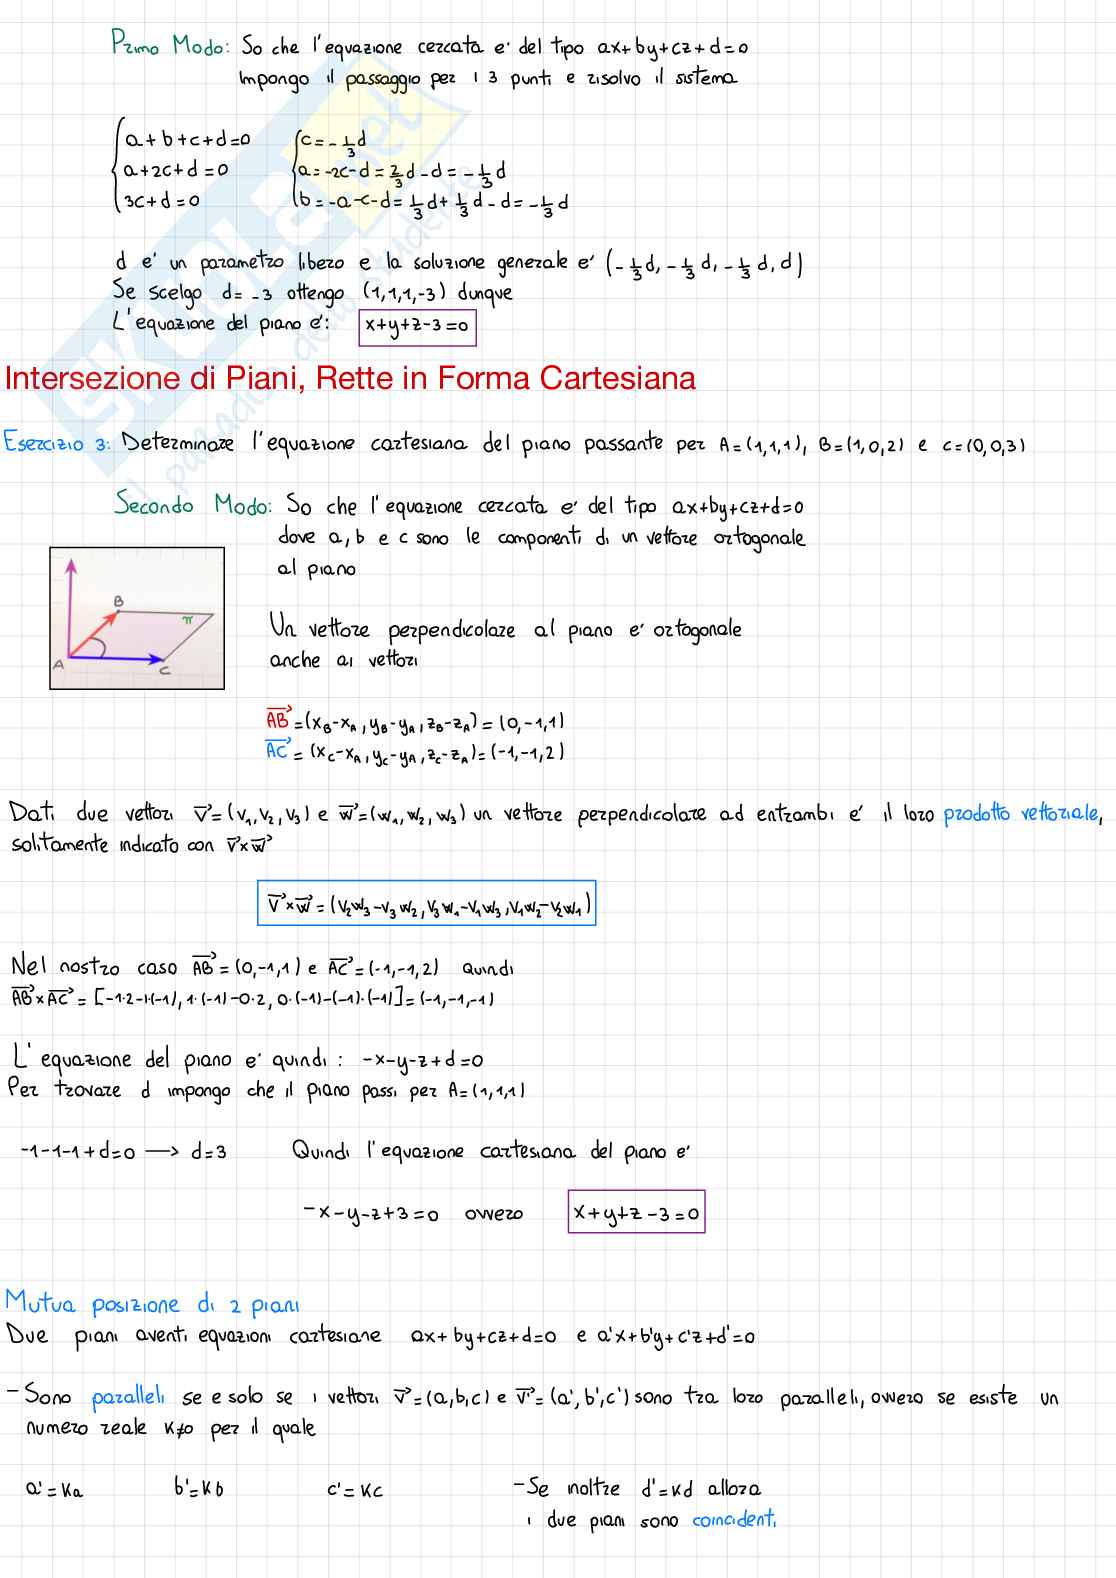 Primo Modo: So che l'equazione cercata e' del tipo ax+by+cz+d=0
Impongo il passaggio per i 3 punti e risolvo il sistema
{a+b+c+d=0 {c=-1/3d
a+2c+d=0 a=-2c-d=2/3d-d=-1/3d
3c+d=0 b=-a-c-d=1/3d+1/3d-d=-1/3d
d e' un parametro libero e la soluzione generale e' (-1/3d, -1/3d, -1/3d, d)
Se scelgo d=-3 ottengo (1,1,1,-3) dunque
L'equazione del piano e': x+y+z-3=0
Intersezione di Piani, Rette in Forma Cartesiana
Esercizio 3: Determinare l'equazione cartesiana del piano passante per A=(1,1,1), B=(1,0,2) e C=(0,0,3)
Secondo Modo: So che l'equazione cercata e' del tipo ax+by+cz+d=0
dove a, b e c sono le componenti di un vettore ortogonale
al piano
B
π
A
C
Un vettore perpendicolare al piano e' ortogonale
anche ai vettori
AB→=(xB-xA, yB-yA, zB-zA)=(0,-1,1)
AC→=(xC-xA, yC-yA, zC-zA)=(-1,-1,2)
Dati due vettori v→=(v₁,v₂,v₃) e w→=(w₁,w₂,w₃) un vettore perpendicolare ad entrambi e' il loro prodotto vettoriale,
solitamente indicato con v→×w→
v→×w→=(v₂w₃-v₃w₂, v₃w₁-v₁w₃, v₁w₂-v₂w₁)
Nel nostro caso AB→=(0,-1,1) e AC→=(-1,-1,2) quindi
AB→×AC→=[-1·2-1·(-1), 1·(-1)-0·2, 0·(-1)-(-1)·(-1)]=(-1,-1,-1)
L'equazione del piano e' quindi: -x-y-z+d=0
Per trovare d impongo che il piano passi per A=(1,1,1)
-1-1-1+d=0 → d=3 Quindi l'equazione cartesiana del piano e'
-x-y-z+3=0 ovvero x+y+z-3=0
Mutua posizione di 2 piani
Due piani aventi equazioni cartesiane ax+by+cz+d=0 e a'x+b'y+c'z+d'=0
-Sono paralleli se e solo se i vettori v→=(a,b,c) e v'→=(a',b',c') sono tra loro paralleli, ovvero se esiste un
numero reale K≠0 per il quale
a'=Ka b'=Kb c'=Kc -Se inoltre d'=Kd allora
i due piani sono coincidenti
SKUOLA.net
il paradiso dello studente